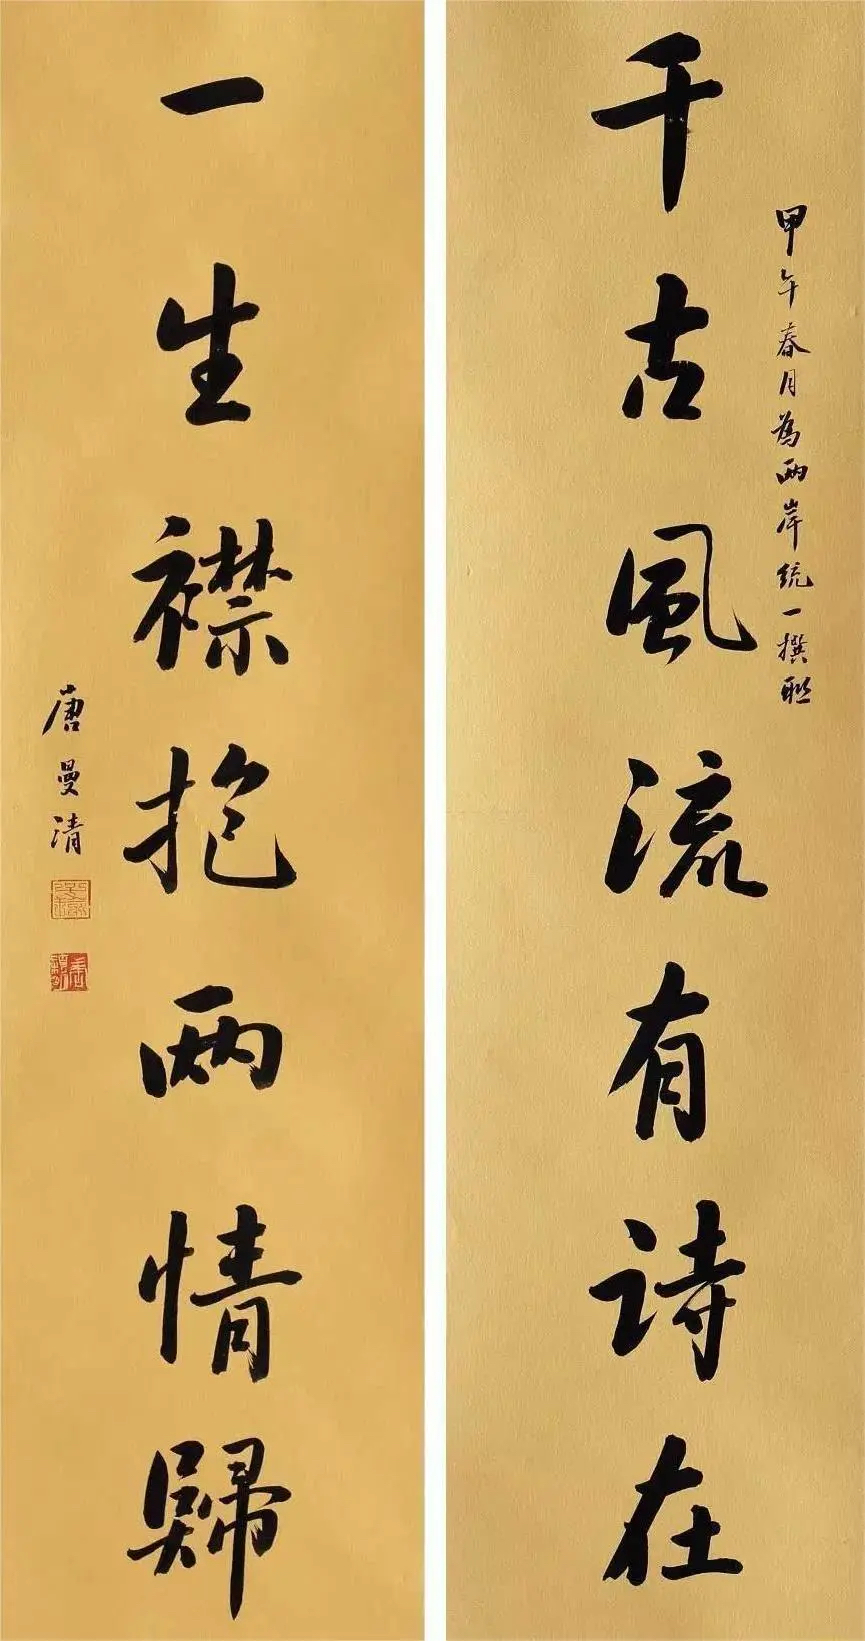 千古風流有诗在
甲午春月為兩岸统一撰联
一生襟抱兩情歸
唐曼清